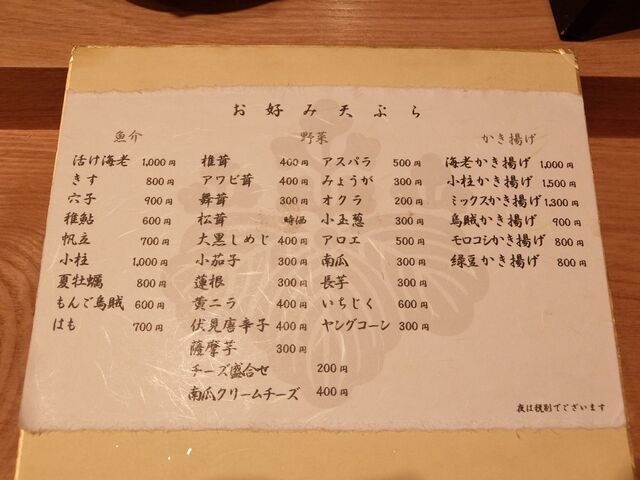 お好み天ぷら
魚介
活け海老 1,000円
きす 800円
穴子 900円
稚鮎 600円
帆立 700円
小柱 1,000円
夏牡蠣 800円
もんご烏賊 600円
はも 700円
野菜
椎茸 400円
アワビ茸 400円
舞茸 300円
松茸 時価
大黒しめじ 400円
小茄子 300円
蓮根 300円
黄ニラ 400円
伏見唐辛子 400円
薩摩芋 300円
チーズ盛合せ 200円
南瓜クリームチーズ 400円
アスパラ 500円
みょうが 300円
オクラ 200円
小玉葱 300円
アロエ 500円
南瓜 300円
長芋 300円
いちじく 600円
ヤングコーン 300円
かき揚げ
海老かき揚げ 1,000円
小柱かき揚げ 1,500円
ミックスかき揚げ 1,300円
烏賊かき揚げ 900円
モロコシかき揚げ 800円
緑豆かき揚げ 800円
夜は税別でございます